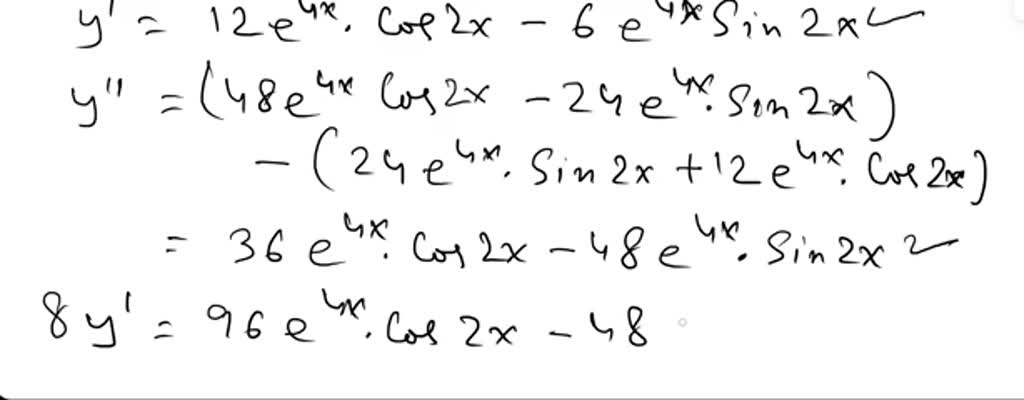 y' = 12e^{4x}. Cos2x - 6 e^{4x} Sin 2x ✓
y'' = (48e^{4x} Cos2x - 24e^{4x}. Sin 2x)
- (24e^{4x}. Sin 2x + 12e^{4x}. Cos 2x)
= 36 e^{4x}. Cos 2x - 48e^{4x}. Sin 2x ✓
8y' = 96e^{4x}. Cos 2x - 48